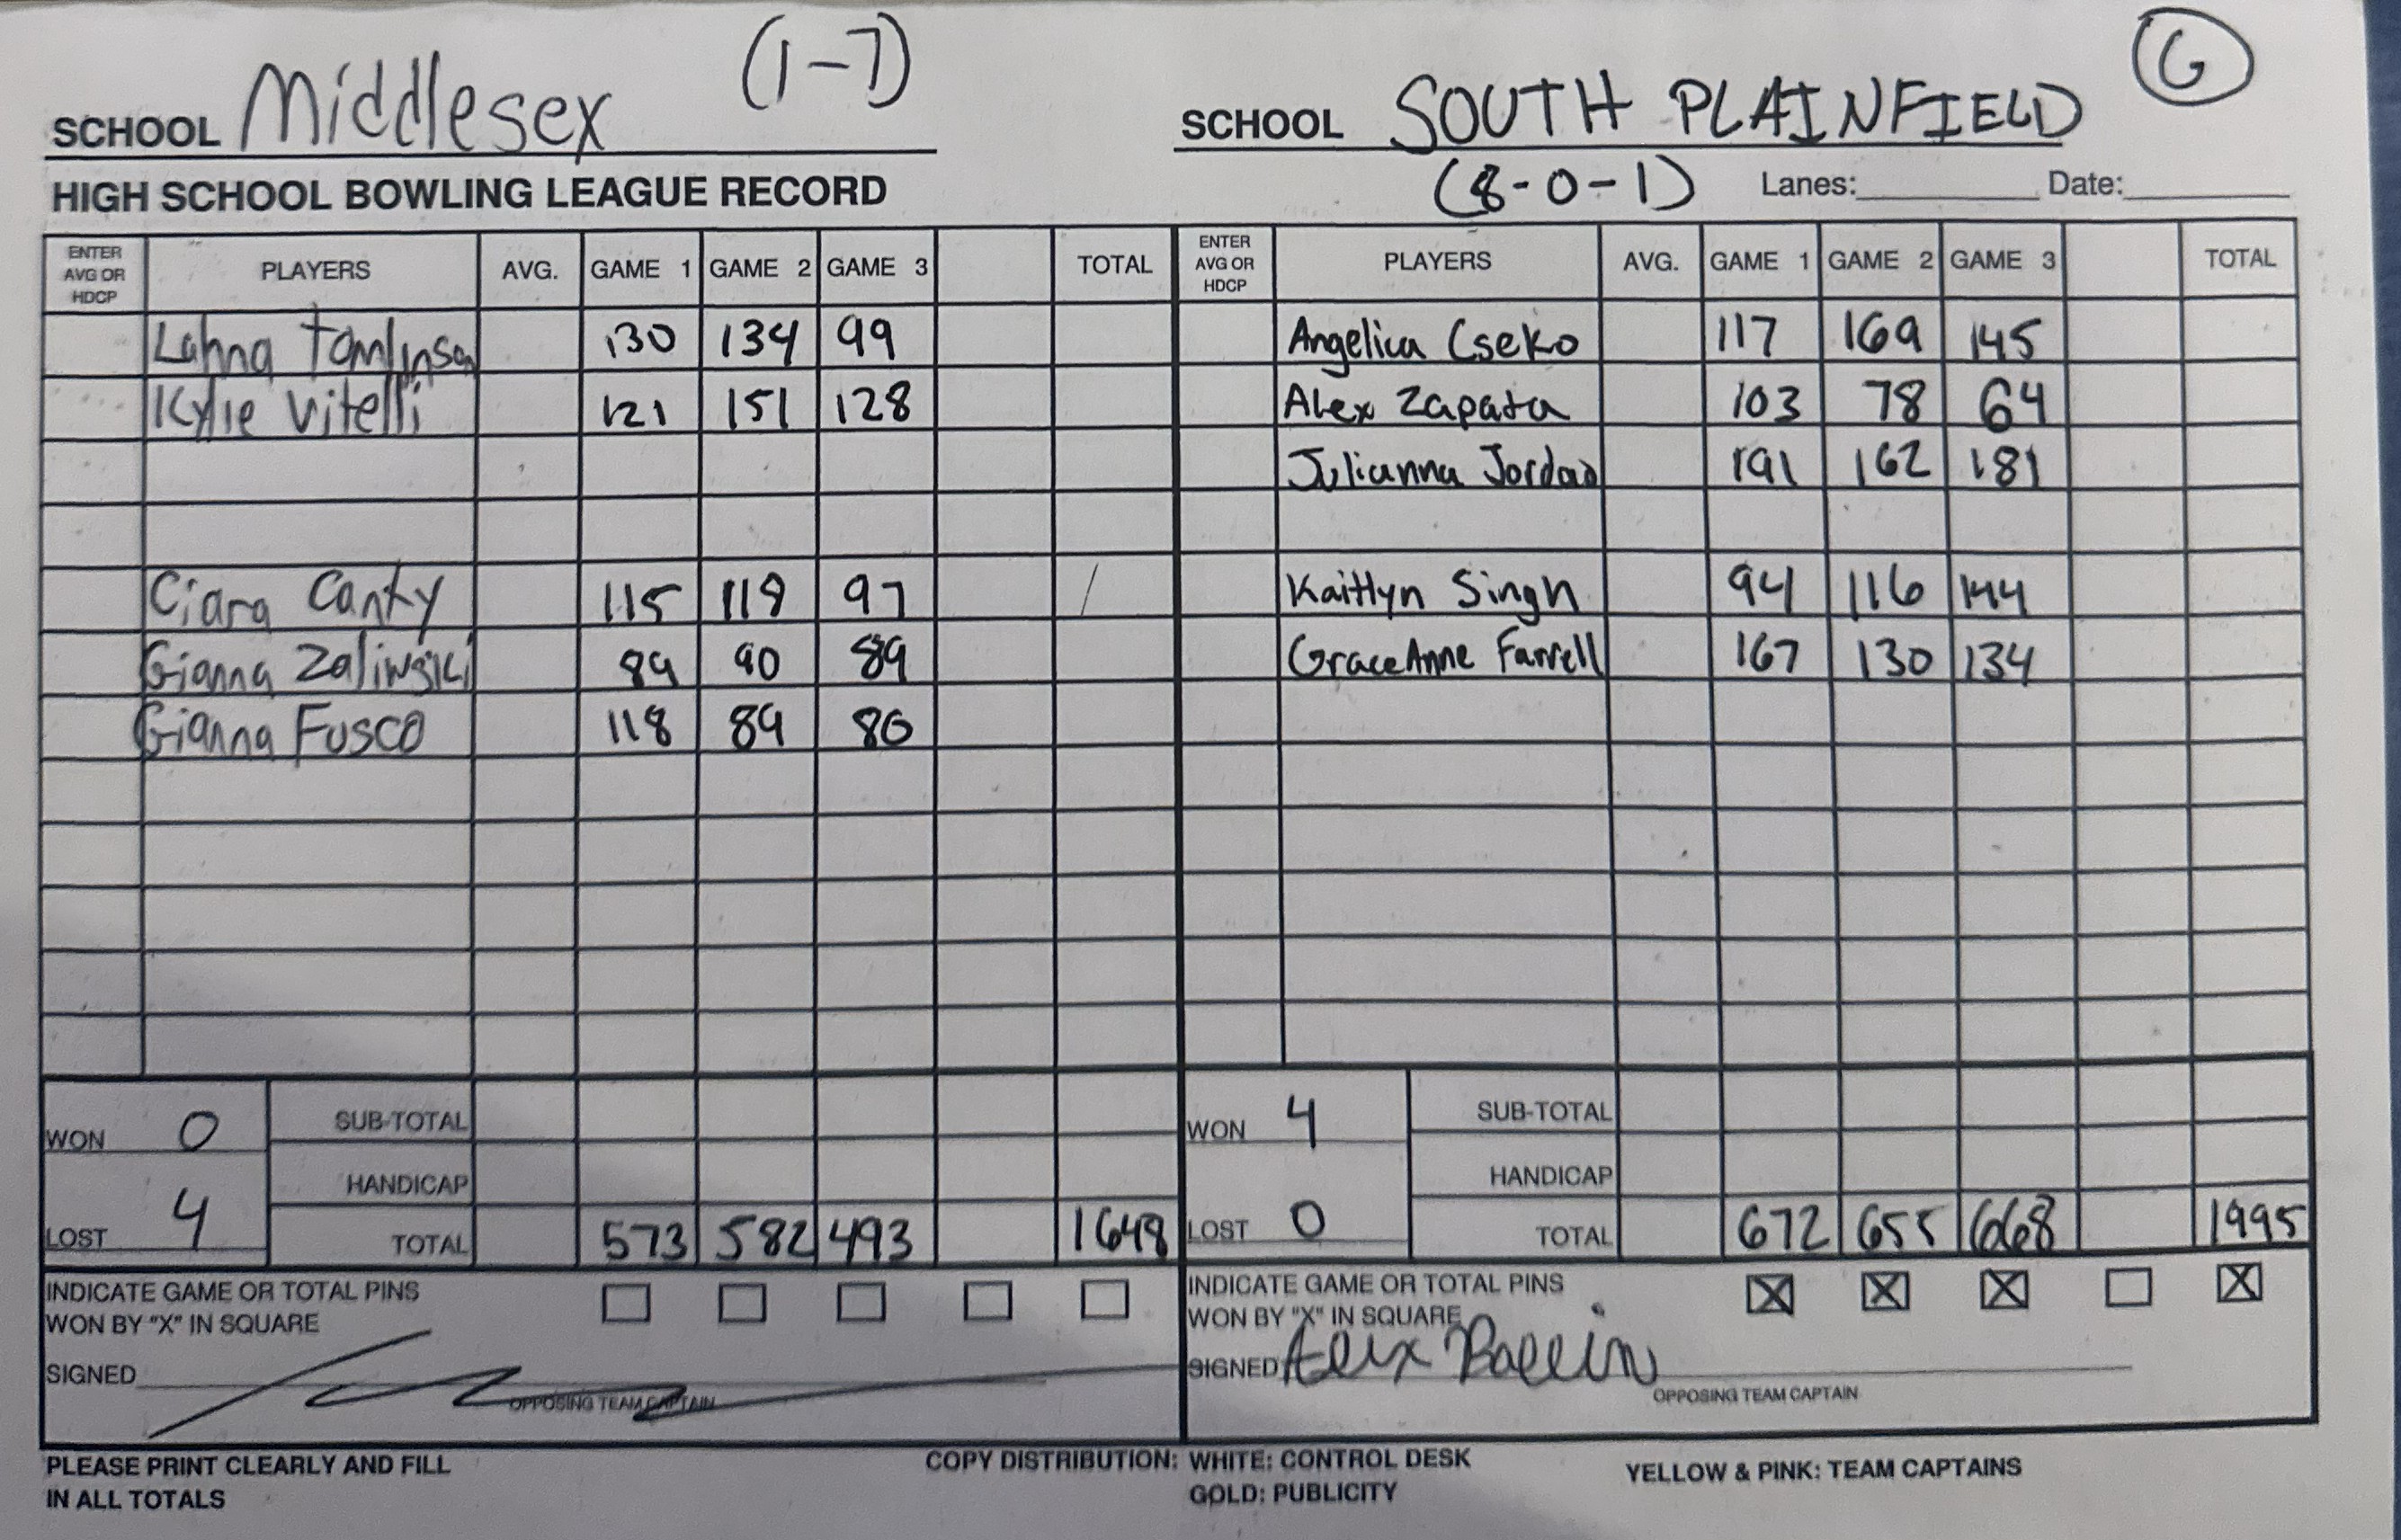 SCHOOL Middlesex (1-7) SCHOOL SOUTH PLAINFIELD G
HIGH SCHOOL BOWLING LEAGUE RECORD (8-0-1) Lanes: Date:
ENTER AVG OR HDCP PLAYERS AVG. GAME 1 GAME 2 GAME 3 TOTAL ENTER AVG OR HDCP PLAYERS AVG. GAME 1 GAME 2 GAME 3 TOTAL
Lahna Tomlinson 130 134 99 Angelica Cseko 117 169 145
Kylie Vitelli 121 151 128 Alex Zapata 103 78 64
Julianna Jordao 191 162 181
Ciara Canty 115 118 97 Kaitlyn Singh 94 116 144
Gianna Zaliwski 89 90 89 GraceAnne Farrell 167 130 134
Gianna Fusco 118 89 80
WON 0 SUB-TOTAL WON 4 SUB-TOTAL
HANDICAP HANDICAP
LOST 4 TOTAL 573 582 493 1648 LOST 0 TOTAL 672 655 668 1995
INDICATE GAME OR TOTAL PINS INDICATE GAME OR TOTAL PINS X X X X
WON BY "X" IN SQUARE WON BY "X" IN SQUARE
SIGNED SIGNED Alix
OPPOSING TEAM CAPTAIN OPPOSING TEAM CAPTAIN
PLEASE PRINT CLEARLY AND FILL COPY DISTRIBUTION: WHITE: CONTROL DESK YELLOW & PINK: TEAM CAPTAINS
IN ALL TOTALS GOLD: PUBLICITY